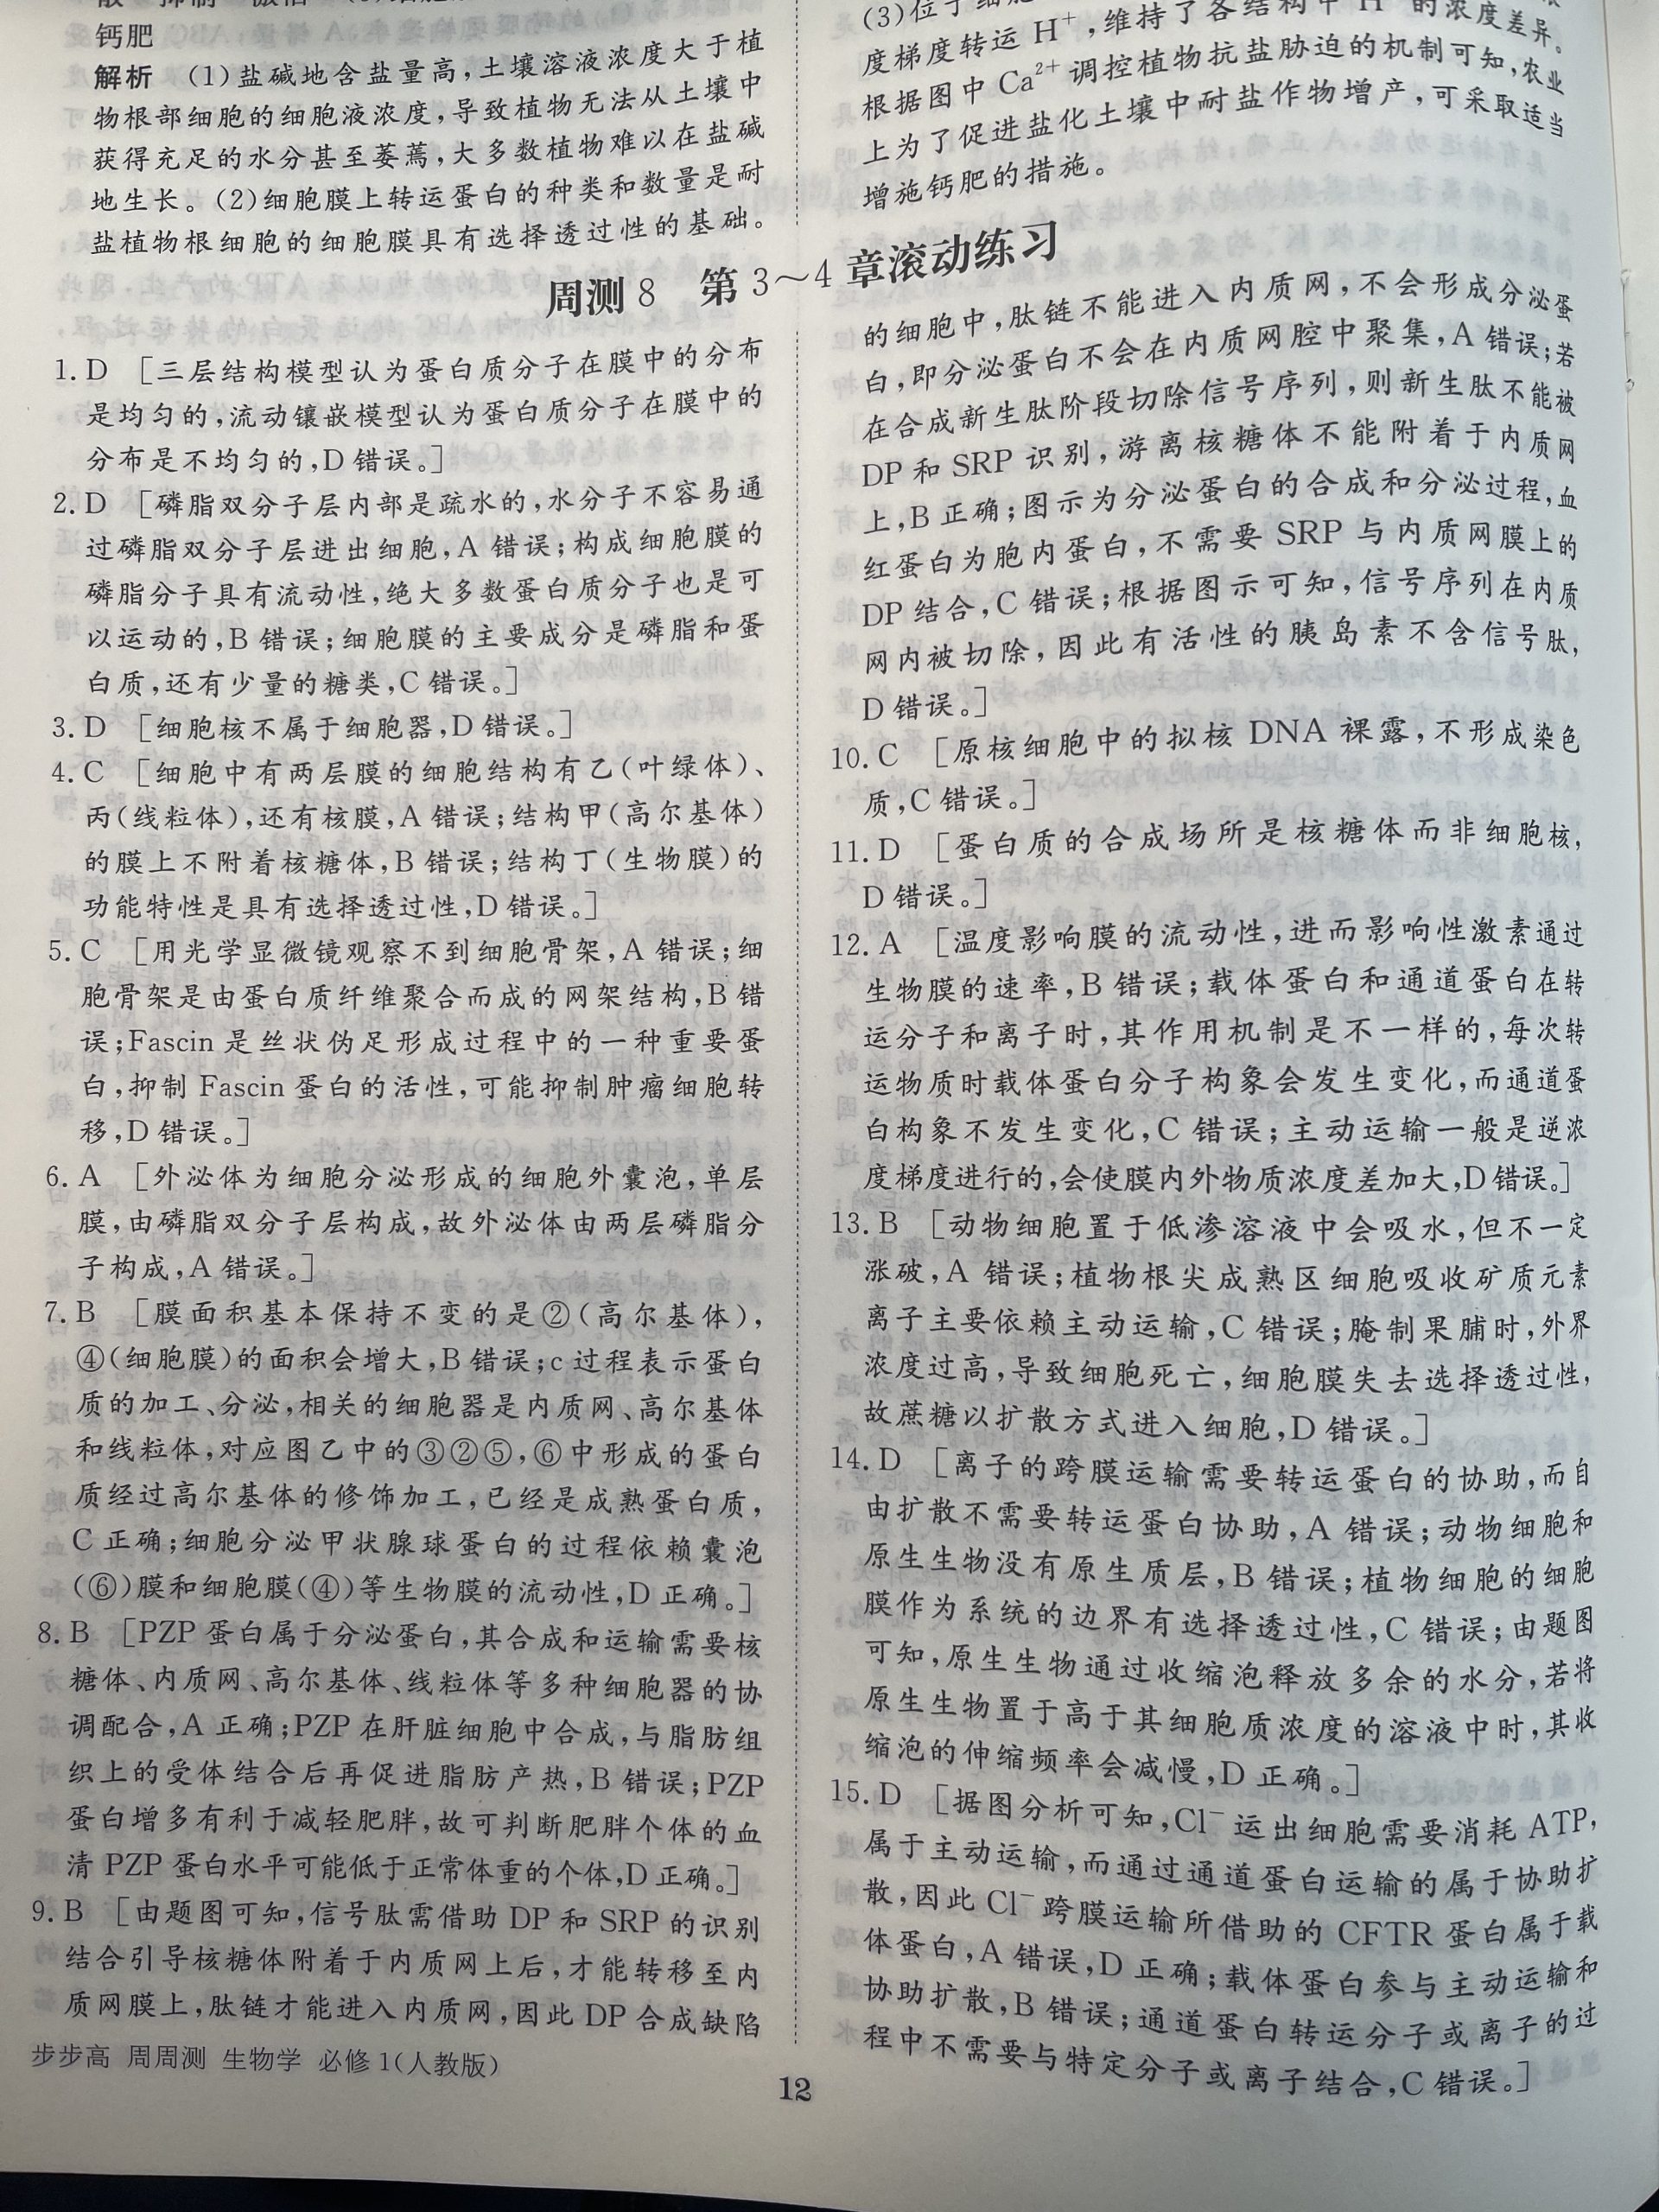 钙肥
解析 (1)盐碱地含盐量高,土壤溶液浓度大于植
物根部细胞的细胞液浓度,导致植物无法从土壤中
获得充足的水分甚至萎蔫,大多数植物难以在盐碱
地生长。(2)细胞膜上转运蛋白的种类和数量是耐
盐植物根细胞的细胞膜具有选择透过性的基础。
(3)位于细胞
度梯度转运 H⁺,维持了各结构中 H⁺ 的浓度差异。
根据图中 Ca²⁺ 调控植物抗盐胁迫的机制可知,农业
上为了促进盐化土壤中耐盐作物增产,可采取适当
增施钙肥的措施。
周测 8 第 3～4 章滚动练习
1. D [三层结构模型认为蛋白质分子在膜中的分布
是均匀的,流动镶嵌模型认为蛋白质分子在膜中的
分布是不均匀的,D 错误。]
2. D [磷脂双分子层内部是疏水的,水分子不容易通
过磷脂双分子层进出细胞,A 错误;构成细胞膜的
磷脂分子具有流动性,绝大多数蛋白质分子也是可
以运动的,B 错误;细胞膜的主要成分是磷脂和蛋
白质,还有少量的糖类,C 错误。]
3. D [细胞核不属于细胞器,D 错误。]
4. C [细胞中有两层膜的细胞结构有乙(叶绿体)、
丙(线粒体),还有核膜,A 错误;结构甲(高尔基体)
的膜上不附着核糖体,B 错误;结构丁(生物膜)的
功能特性是具有选择透过性,D 错误。]
5. C [用光学显微镜观察不到细胞骨架,A 错误;细
胞骨架是由蛋白质纤维聚合而成的网架结构,B 错
误;Fascin 是丝状伪足形成过程中的一种重要蛋
白,抑制 Fascin 蛋白的活性,可能抑制肿瘤细胞转
移,D 错误。]
6. A [外泌体为细胞分泌形成的细胞外囊泡,单层
膜,由磷脂双分子层构成,故外泌体由两层磷脂分
子构成,A 错误。]
7. B [膜面积基本保持不变的是②(高尔基体),
④(细胞膜)的面积会增大,B 错误;c 过程表示蛋白
质的加工、分泌,相关的细胞器是内质网、高尔基体
和线粒体,对应图乙中的③②⑤,⑥中形成的蛋白
质经过高尔基体的修饰加工,已经是成熟蛋白质,
C 正确;细胞分泌甲状腺球蛋白的过程依赖囊泡
(⑥)膜和细胞膜(④)等生物膜的流动性,D 正确。]
8. B [PZP 蛋白属于分泌蛋白,其合成和运输需要核
糖体、内质网、高尔基体、线粒体等多种细胞器的协
调配合,A 正确;PZP 在肝脏细胞中合成,与脂肪组
织上的受体结合后再促进脂肪产热,B 错误;PZP
蛋白增多有利于减轻肥胖,故可判断肥胖个体的血
清 PZP 蛋白水平可能低于正常体重的个体,D 正确。]
9. B [由题图可知,信号肽需借助 DP 和 SRP 的识别
结合引导核糖体附着于内质网上后,才能转移至内
质网膜上,肽链才能进入内质网,因此 DP 合成缺陷
的细胞中,肽链不能进入内质网,不会形成分泌蛋
白,即分泌蛋白不会在内质网腔中聚集,A 错误;若
在合成新生肽阶段切除信号序列,则新生肽不能被
DP 和 SRP 识别,游离核糖体不能附着于内质网
上,B 正确;图示为分泌蛋白的合成和分泌过程,血
红蛋白为胞内蛋白,不需要 SRP 与内质网膜上的
DP 结合,C 错误;根据图示可知,信号序列在内质
网内被切除,因此有活性的胰岛素不含信号肽,
D 错误。]
10. C [原核细胞中的拟核 DNA 裸露,不形成染色
质,C 错误。]
11. D [蛋白质的合成场所是核糖体而非细胞核,
D 错误。]
12. A [温度影响膜的流动性,进而影响性激素通过
生物膜的速率,B 错误;载体蛋白和通道蛋白在转
运分子和离子时,其作用机制是不一样的,每次转
运物质时载体蛋白分子构象会发生变化,而通道蛋
白构象不发生变化,C 错误;主动运输一般是逆浓
度梯度进行的,会使膜内外物质浓度差加大,D 错误。]
13. B [动物细胞置于低渗溶液中会吸水,但不一定
涨破,A 错误;植物根尖成熟区细胞吸收矿质元素
离子主要依赖主动运输,C 错误;腌制果脯时,外界
浓度过高,导致细胞死亡,细胞膜失去选择透过性,
故蔗糖以扩散方式进入细胞,D 错误。]
14. D [离子的跨膜运输需要转运蛋白的协助,而自
由扩散不需要转运蛋白协助,A 错误;动物细胞和
原生生物没有原生质层,B 错误;植物细胞的细胞
膜作为系统的边界有选择透过性,C 错误;由题图
可知,原生生物通过收缩泡释放多余的水分,若将
原生生物置于高于其细胞质浓度的溶液中时,其收
缩泡的伸缩频率会减慢,D 正确。]
15. D [据图分析可知,Cl⁻ 运出细胞需要消耗 ATP,
属于主动运输,而通过通道蛋白运输的属于协助扩
散,因此 Cl⁻ 跨膜运输所借助的 CFTR 蛋白属于载
体蛋白,A 错误,D 正确;载体蛋白参与主动运输和
协助扩散,B 错误;通道蛋白转运分子或离子的过
程中不需要与特定分子或离子结合,C 错误。]
步步高 周周测 生物学 必修 1(人教版)
12